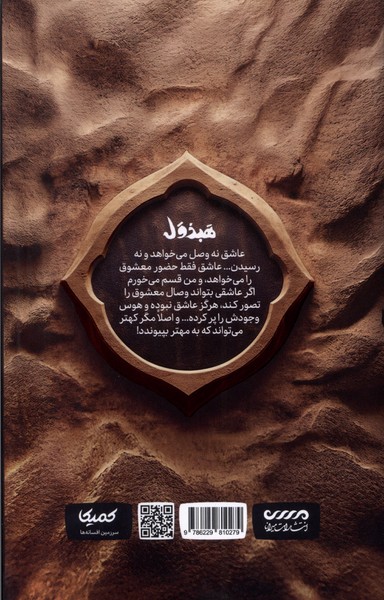 هَبدُوَل
عاشق نه وصل می‌خواهد و نه
رسیدن... عاشق فقط حضور معشوق
را می‌خواهد، و من قسم می‌خورم
اگر عاشقی بتواند وصال معشوق را
تصور کند، هرگز عاشق نبوده و هوس
وجودش را پر کرده... و اصلاً مگر کهتر
می‌تواند که به مهتر بپیوندد!
کمیکا
سرزمین افسانه‌ها
9 786229 810279